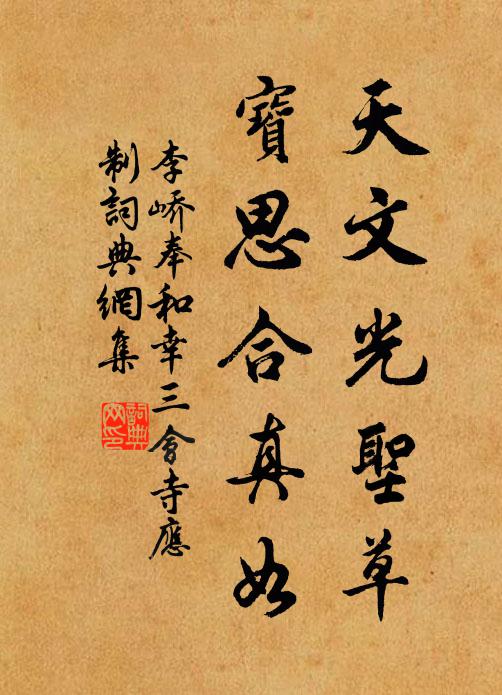 天文光聖草
寶思合真如
李嶠奉和幸三會寺應
制詞典網集
詞典
网印